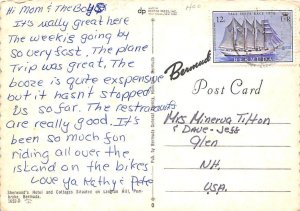 Hi Mom & The Boys
It's really great here
The week is going by
so very fast. The plane
Trip was great, The
booze is quite expensive
but it hasn't stopped
us so far. The resturants
are really good. It's
been so much fun
riding all over the
island on the bikes
Love ya Kathy & Pete
Sherwood's Hotel and Cottages Situated on
broke, Bermuda.
dp
12c
BERMUDA
Bermuda
Post Card
Mrs Minerva Tilton
& Dave - Jeff
Glen
NH.
USA.